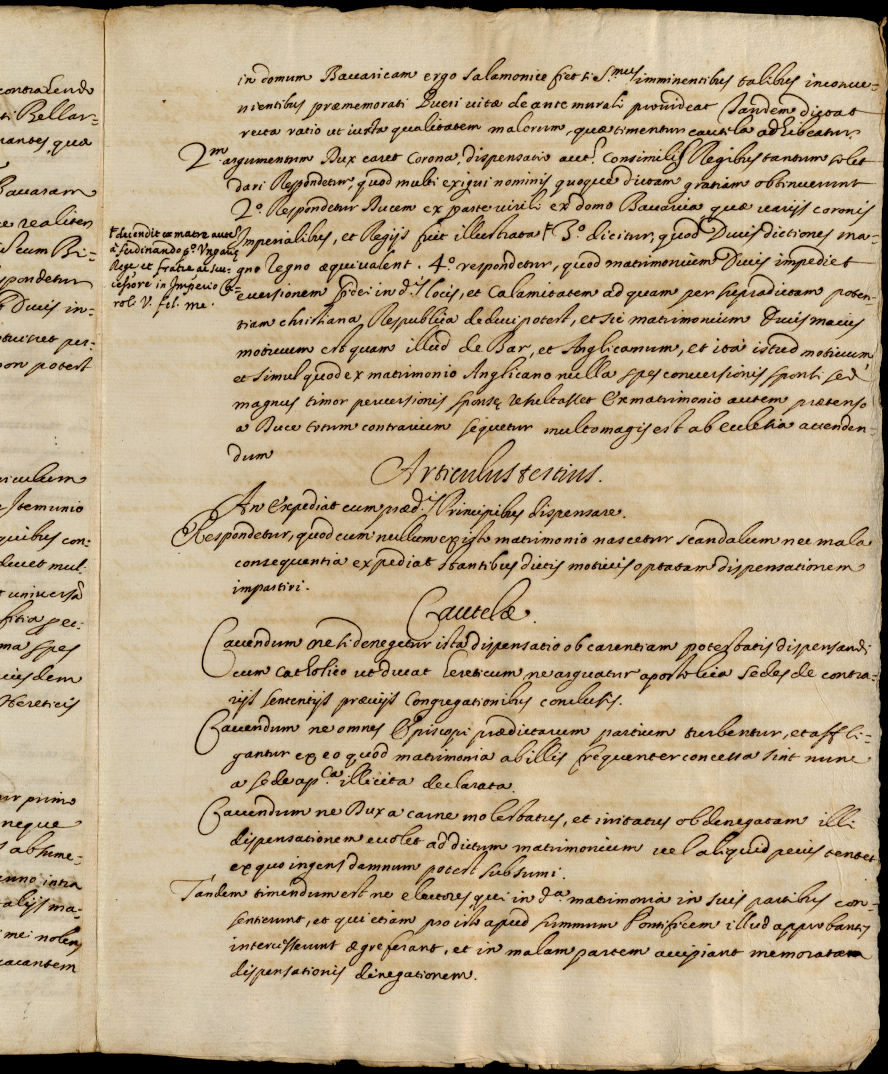 contrahendo
ti Bellar=
nantes qua
Bavaram
e realiter
is cum Bi=
spondetur
Ducis in=
non potest
iniculum
quibus con:
ducet mul.
t universa
ma spes
eiusdem
Hereticis
ur primo
neque
absume=
enno intra
alijs ma=
mei nolens
vacantem
in domum Bavaricam ergo salamonice fiet si S.mus imminentibus talibus inconve=
nientibus præmemorati Pueri vitæ de ante murali provideat Tandem dictat
recta ratio ut iuxta qualitatem malorum, quæ timentur cautela adhibeatur
2.m argumentum Dux caret Corona, dispensatio aut.e Consimilis Regibus tantum solet
dari Respondetur, quod multi exigui nominis quoque dictam gratiam obtinuerunt
2.º Respondetur Ducem ex parte virili ex domo Bavaria quæ varijs coronis
Imperialibus, et Regijs fuit illustrata † 3.º dicitur, quod Ducis dictiones ma=
gno regno æquivalent. 4.º respondetur, quod matrimonium Ducis impediet
eversionem fidei in d.is locis, et Calamitatem ad quam per supradictam poten=
tiam christiana Respublica deduci potest, et sic matrimonium Ducis maius
motivum est quam illud de Bar, et Anglicanum, et ita istud motivum
et simul quod ex matrimonio Anglicano nulla spes conversionis sponsi sed
magnus timor perversionis sponsę resultasset Ex matrimonio autem prætenso
a Duce totum contrarium sequetur multo magis est ab ecclesia accenden=
dum
† descendit ex matre
a Ferdinando p.º Ungariæ
Rege, et fratre ac suc=
cessore in Imperio Ca=
roli V. fel. me.
Articulus tertius.
An Expediat cum præd.is Principibus dispensare.
Respondetur, quod cum nullum ex isto matrimonio nascetur scandalum nec mala
consequentia expediat stantibus dictis motivis optatam dispensationem
impartiri.
Cautelæ.
Cavendum ne si denegetur ista dispensatio ob carentiam potestatis dispensandi
cum catholico ut ducat hereticum ne arguatur apostolica sedes de contra=
rijs sententijs prævijs Congregationibus conclusis.
Cavendum ne omnes Episcopi prædictarum partium turbentur, et affli=
gantur ex eo quod matrimonia ab illis frequenter concessa sint nunc
a sede ap.ca illicita declarata.
Cavendum ne Dux a carne molestatus, et irritatus ob denegatam illi
dispensationem evolet ad dictum matrimonium vel aliquid peius tentet
ex quo ingens damnum potest subsumi.
Tandem timendum est ne electores qui in d.a matrimonia in suis partibus con=
sentierunt, et qui etiam pro isto apud summum Pontificem illud approbantes
intercesserunt ægre ferant, et in malam partem accipiant memoratam
dispensationis denegationem.